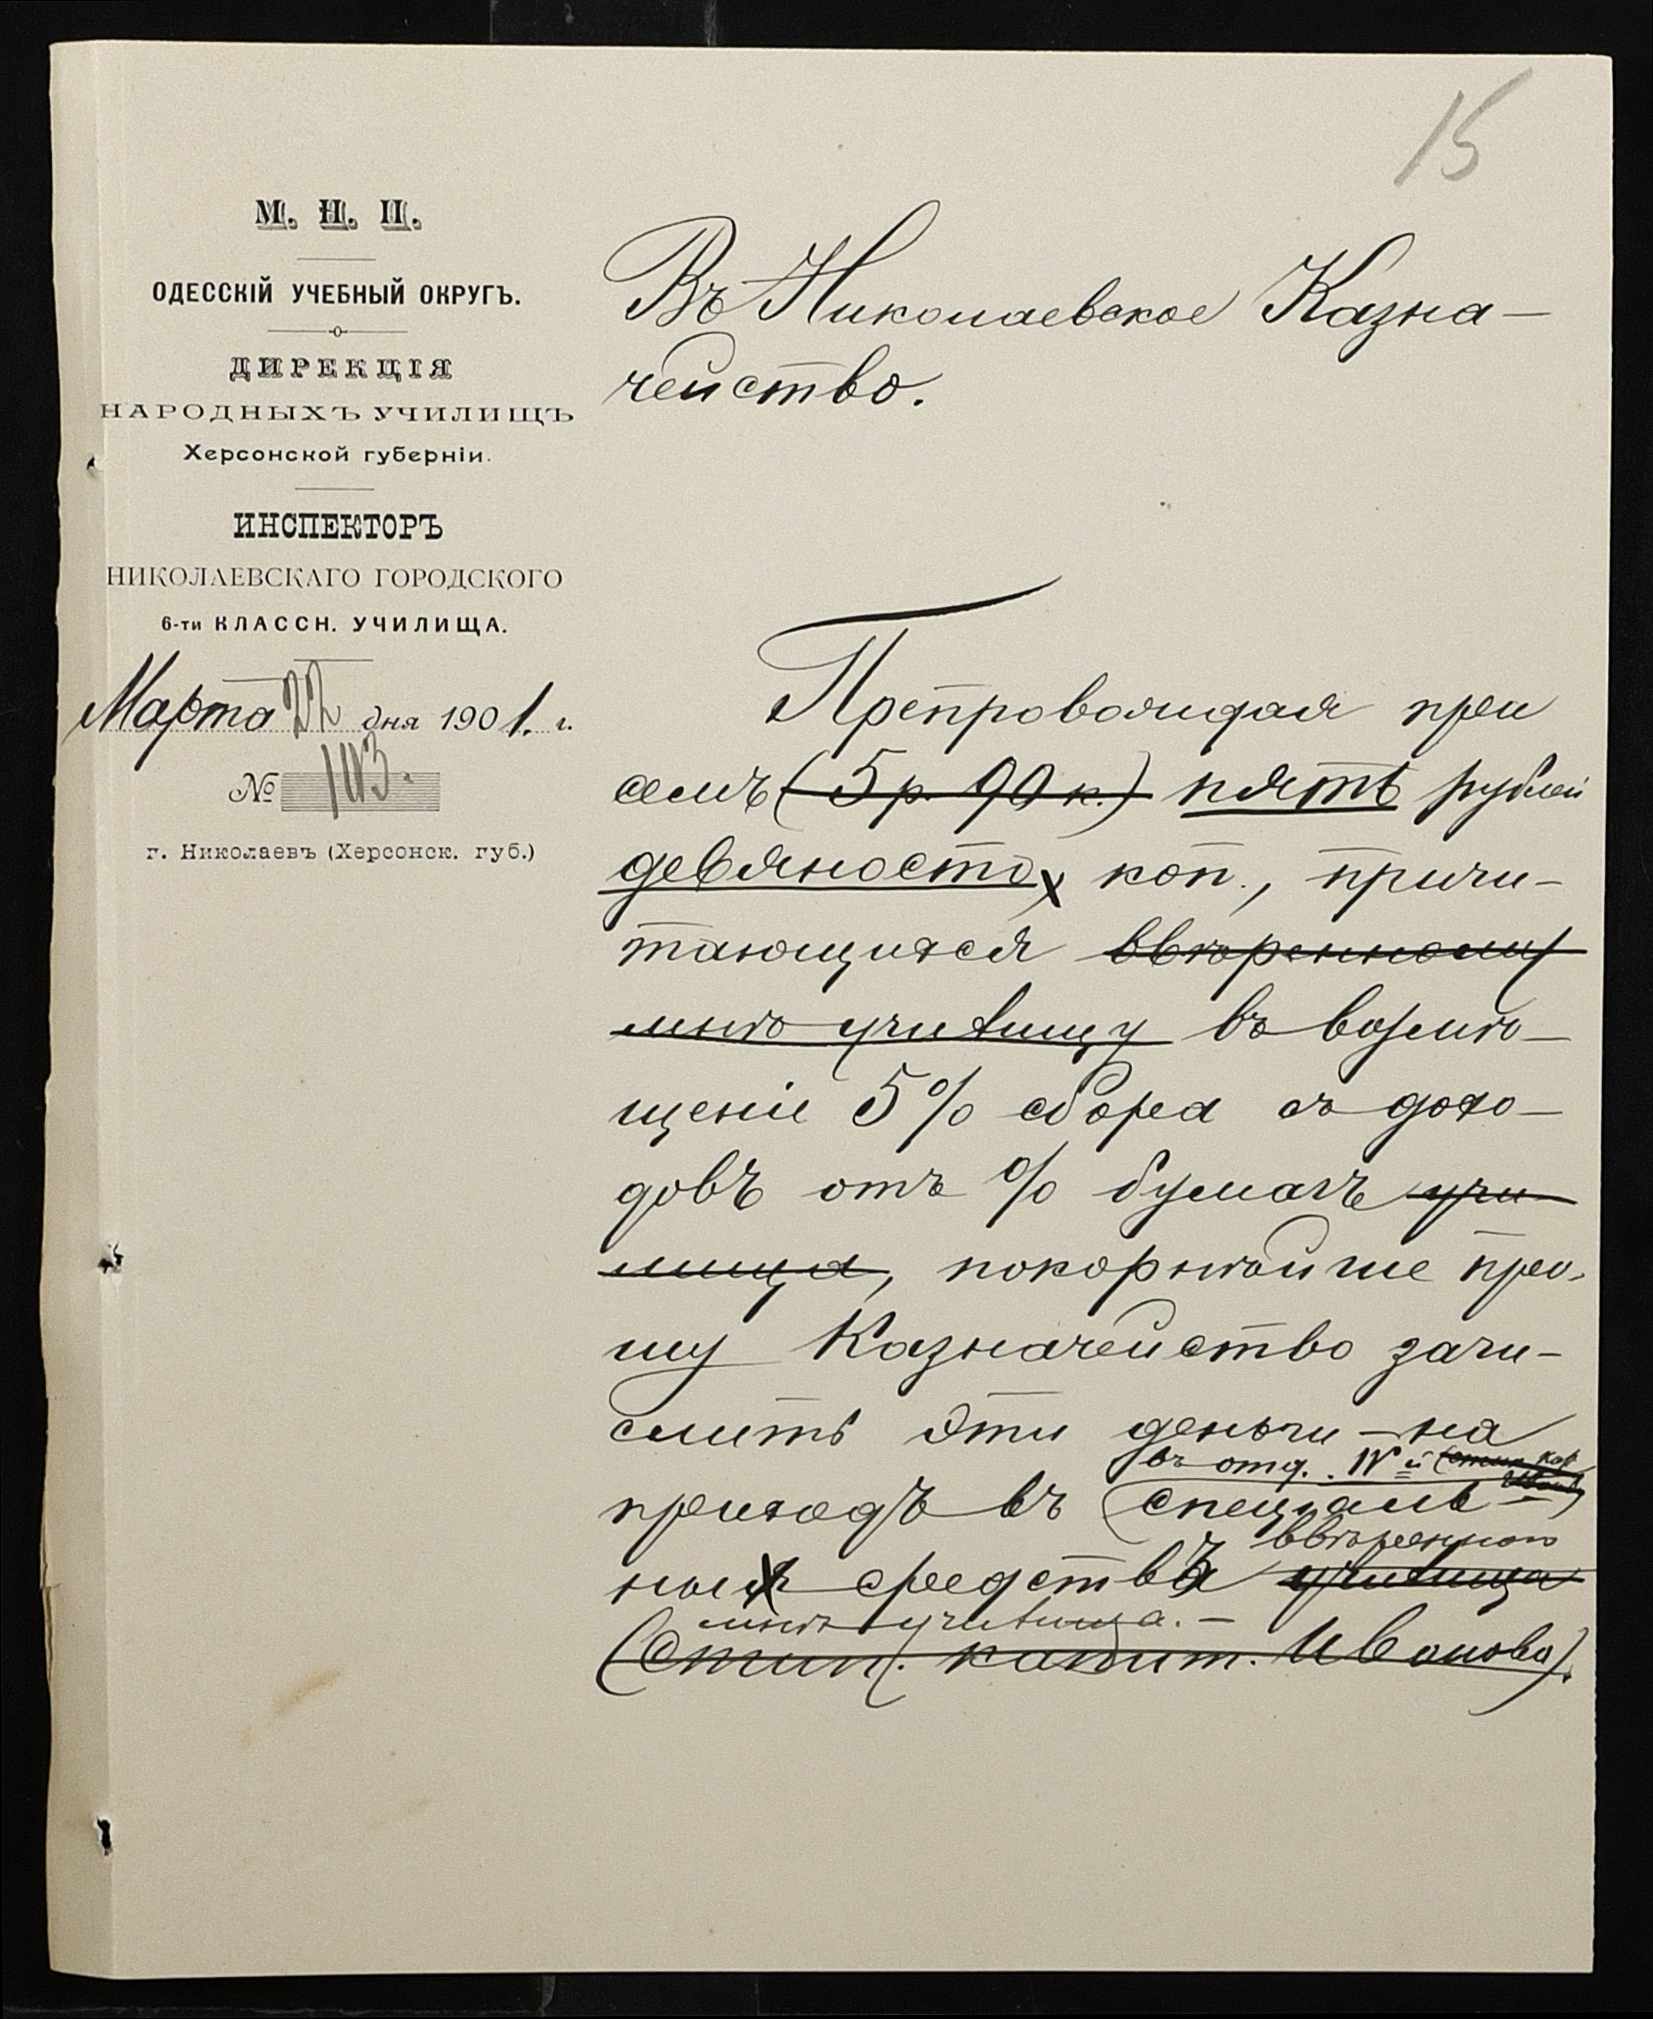 15
М. Н. П.
ОДЕССКІЙ УЧЕБНЫЙ ОКРУГЪ.
ДИРЕКЦІЯ
НАРОДНЫХЪ УЧИЛИЩЪ
Херсонской губерніи.
ИНСПЕКТОРЪ
НИКОЛАЕВСКАГО ГОРОДСКОГО
6-ти КЛАССН. УЧИЛИЩА.
Марта 22 дня 1901. г.
№ 103.
г. Николаевъ (Херсонск. губ.)
Въ Николаевское Казна-
чейство.
Препровождая при
семъ (5 р. 90 к.) пять рублей
девяносто коп., причи-
тающихся ввѣренному
мнѣ училищу въ возмѣ-
щеніе 5% сбора съ дохо-
довъ отъ % бумагъ учи-
лища, покорнѣйше про-
шу Казначейство зачи-
слить эти деньги на
въ отд. IV й (стип. кап.
приходъ въ специаль-
ввѣреннаго
ных средствъ училища
мнѣ училища. -
(Стип. капит. Иванова).